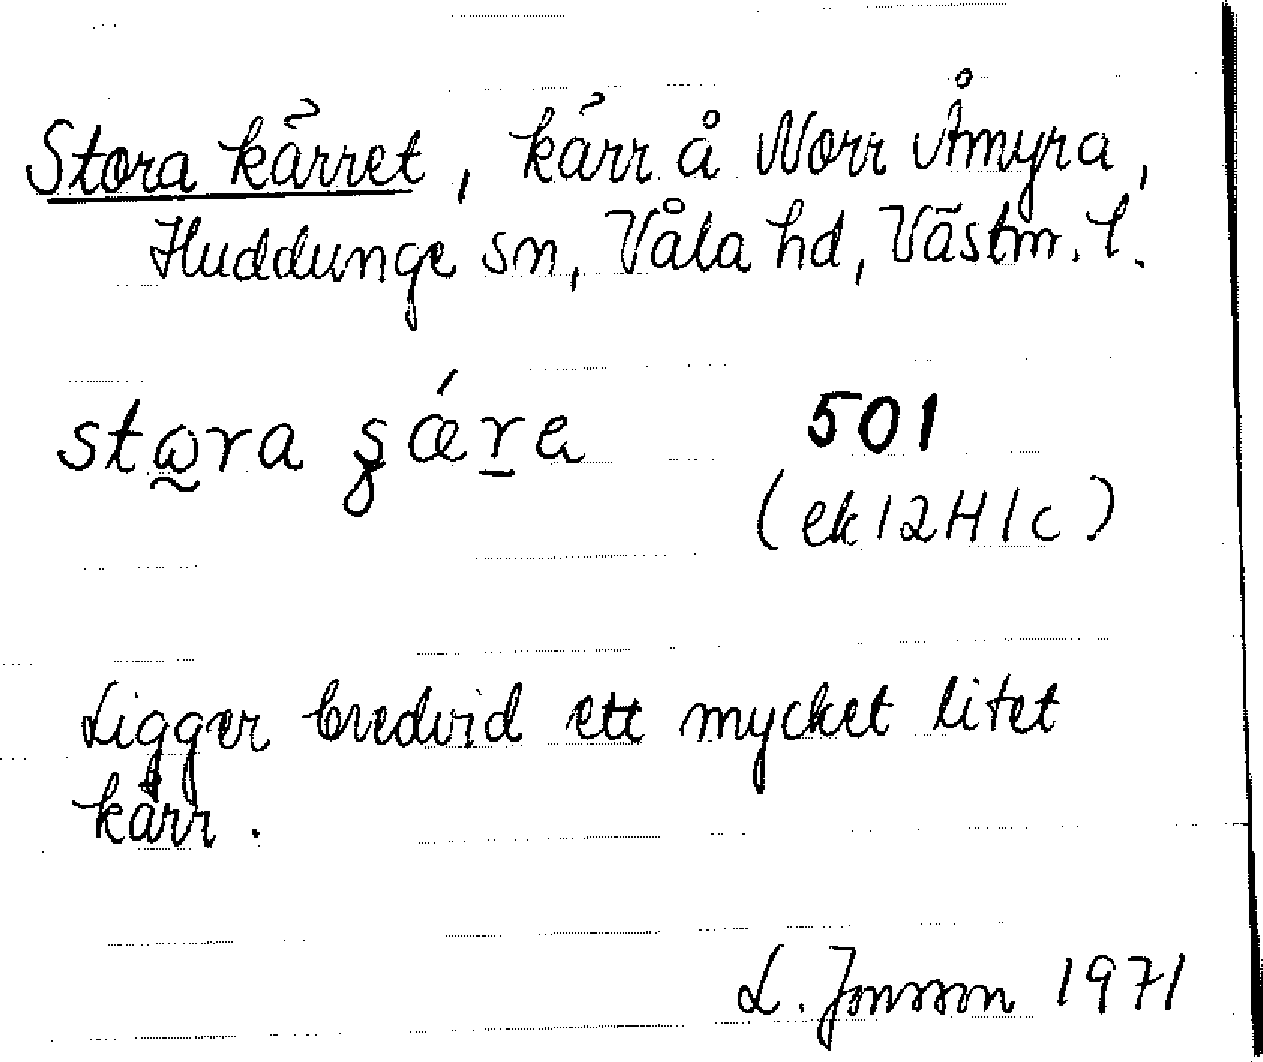 Stora kärret, kärr å Norr Åmyra,
Huddunge sn, Våla hd, Västm. l.
501
(ek 12H1c)
Ligger bredvid ett mycket litet
kärr.
L. Jonsson 1971